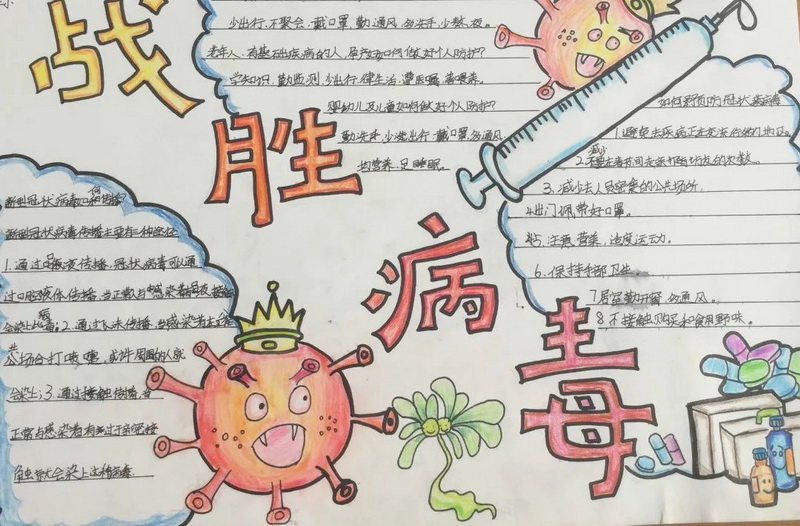 战
胜
病
毒
少出行，不聚会，戴口罩，勤通风，多洗手，少熬夜。
老年人、有基础疾病的人、孕产妇如何做好个人防护？
学知识，勤监测，少出行，健生活，遵医嘱
婴幼儿及儿童如何做好个人防护？
勤洗手，少出行，戴口罩，多通风
均营养，足睡眠。
新型冠状病毒如何传播
新型冠状病毒传播主要有三种途径
1.通过口腔液传播，冠状病毒可通
过口腔液体传播，当正常与感染者
会染上病毒；2.通过飞沫传播，当感染者在公
共场合打喷嚏，或许周围的人就
会染上；3.通过接触传播，当
正常与感染者有过于亲密接
触就会染上这种病毒
如何预防冠状病毒
1.避免去疾病正在流行的地区。
2.减少
3.减少去人员密集的公共场所。
4.出门佩带好口罩。
5.注意营养，适度运动。
6.保持手部卫生
7.居室勤开窗，多通风。
8.不接触购买和食用野味。